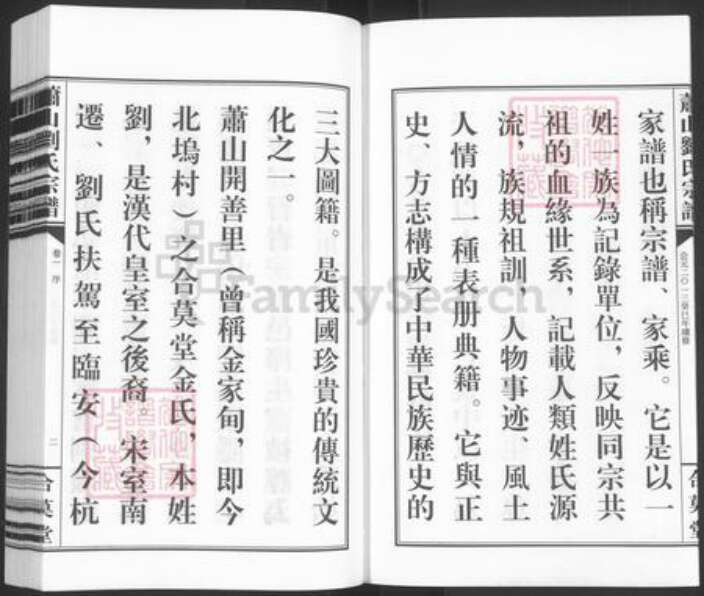 蕭山劉氏宗譜
公元二〇一三癸巳年續修
合莫堂
家譜也稱宗譜、家乘。它是以一
姓一族為記錄單位，反映同宗共
祖的血緣世系，記載人類姓氏源
流，族規祖訓，人物事迹、風土
人情的一種表册典籍。它與正
史、方志構成了中華民族歷史的
三大圖籍。是我國珍貴的傳統文
化之一。
蕭山開善里（曾稱金家甸，即今
北塢村）之合莫堂金氏，本姓
劉，是漢代皇室之後裔。宋室南
遷、劉氏扶駕至臨安（今杭
蕭山劉氏宗譜
卷一 序
二
合莫堂
FamilySearch